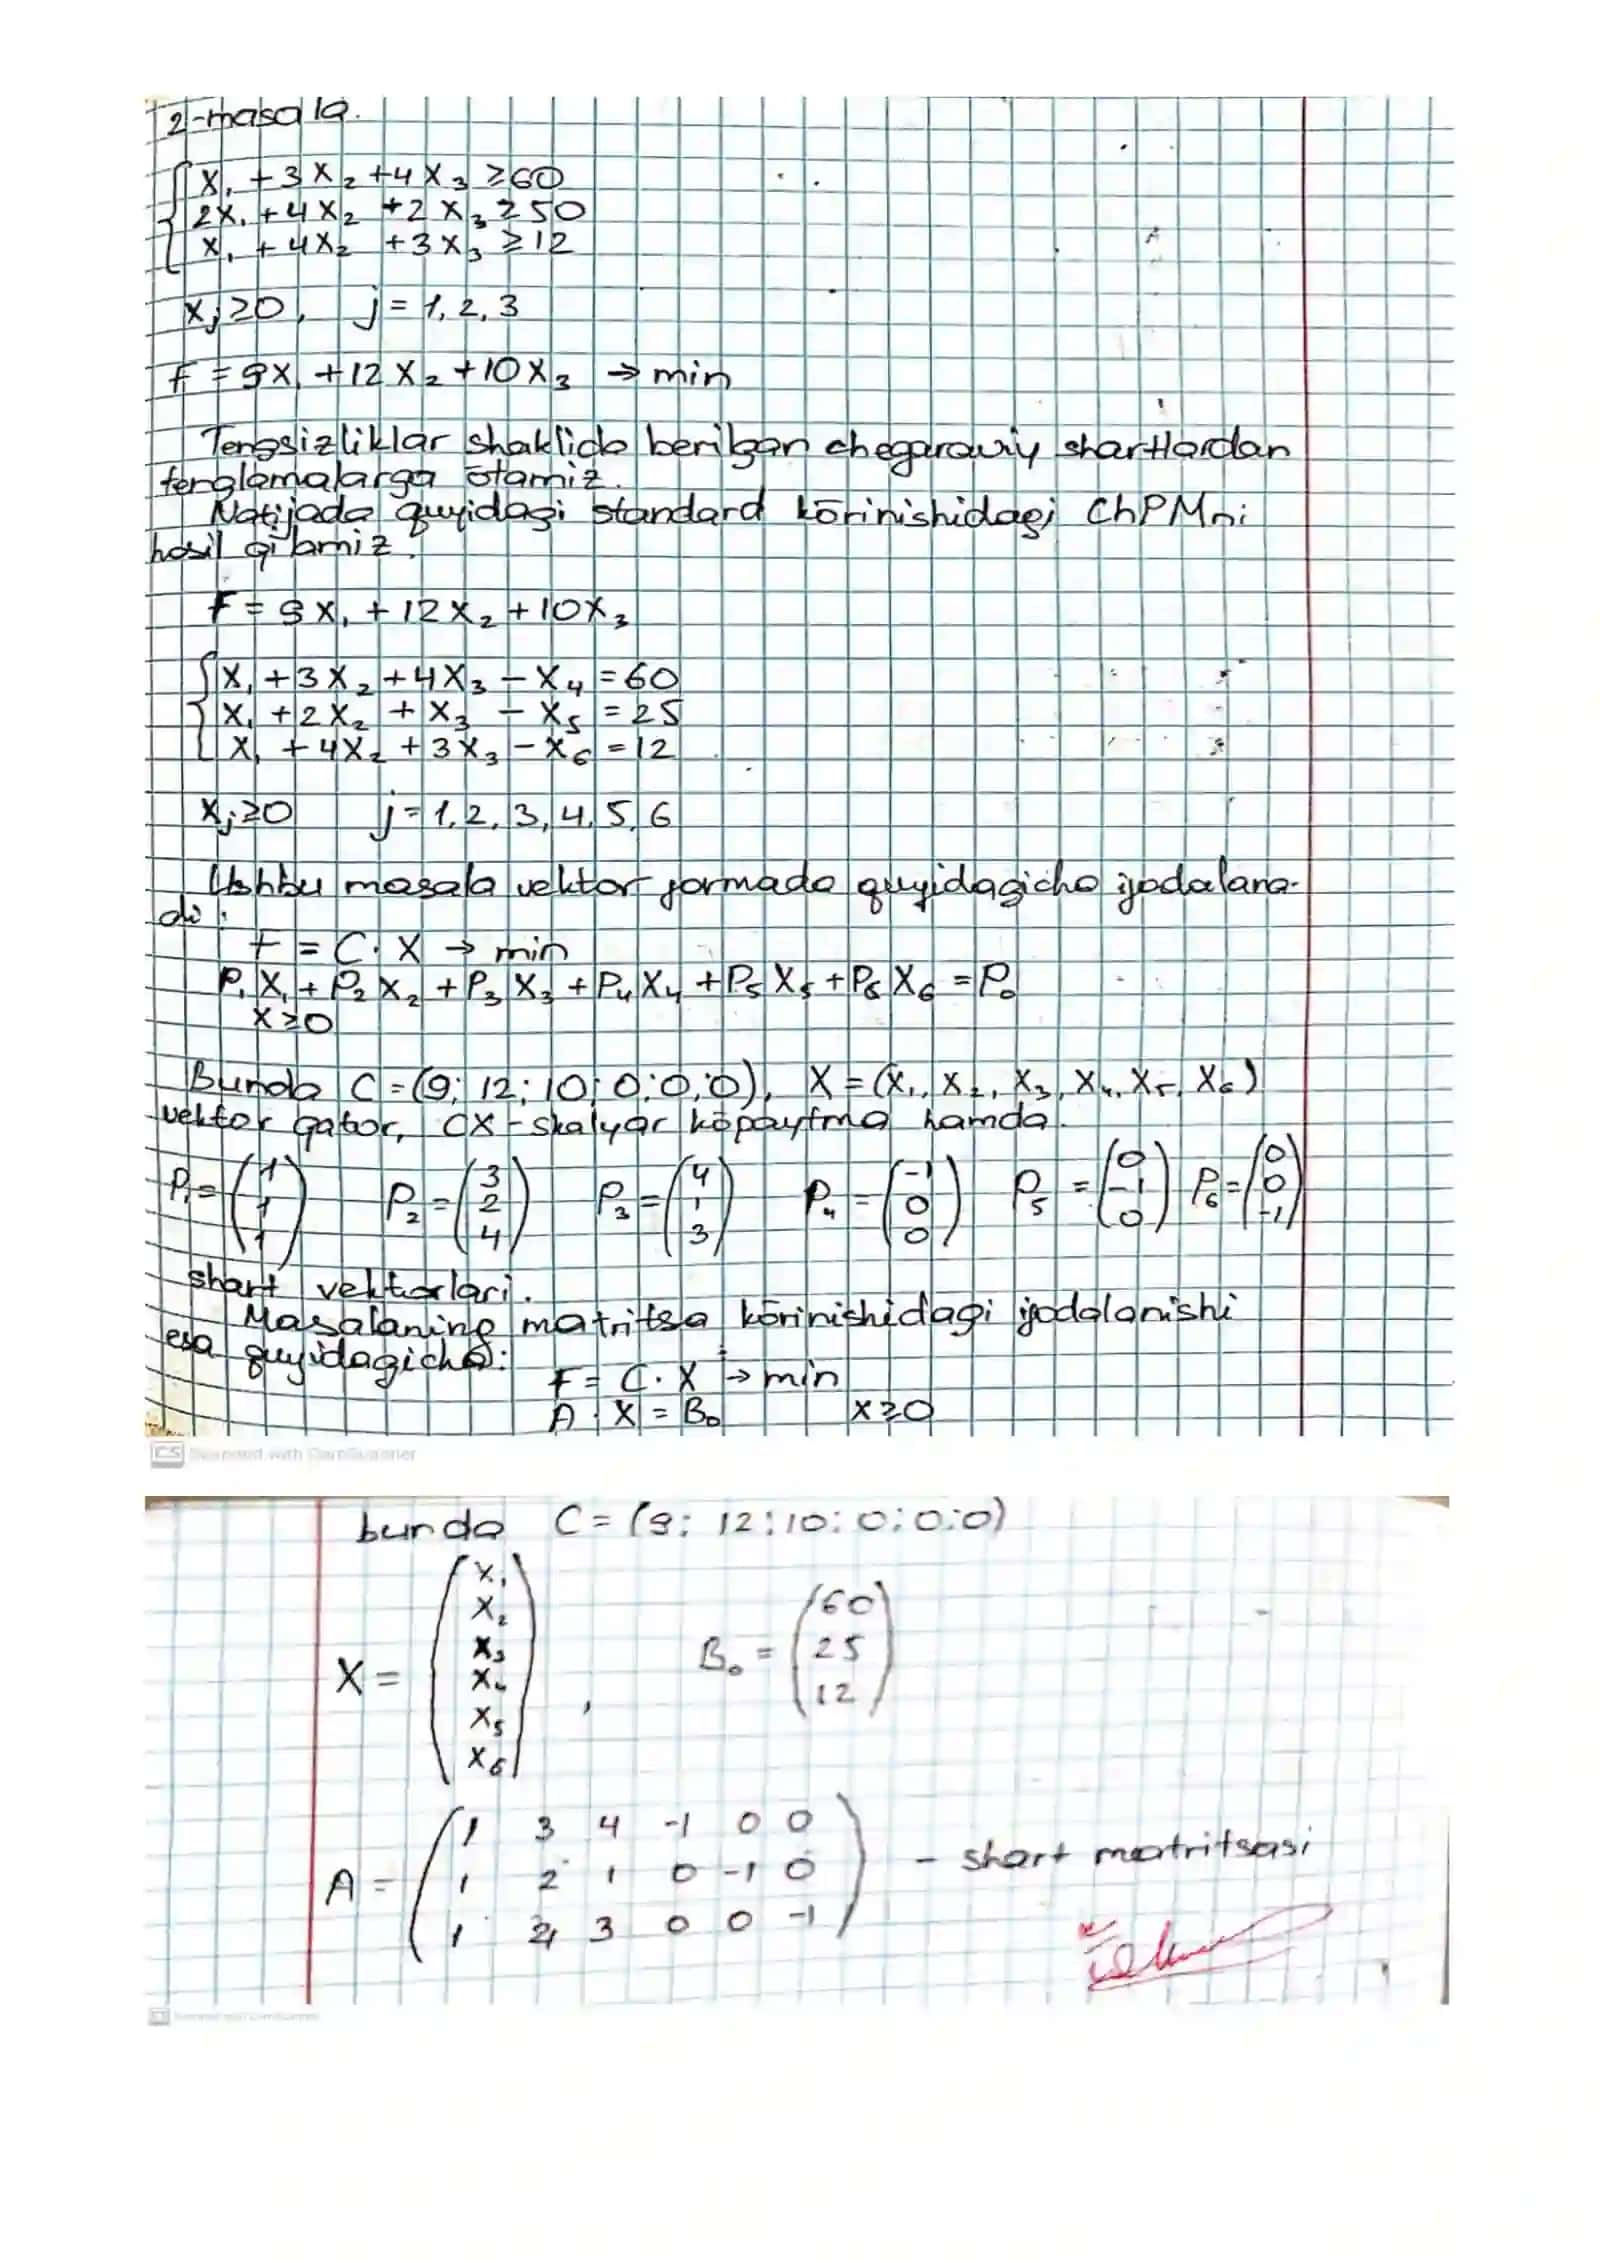 2-masala.
x₁ + 3x₂ + 4x₃ ≥ 60
2x₁ + 4x₂ + 2x₃ ≥ 50
x₁ + 4x₂ + 3x₃ ≥ 12
xⱼ ≥ 0, j = 1, 2, 3
F = 9x₁ + 12x₂ + 10x₃ → min
Tengsizliklar shaklida berilgan chegaraviy shartlardan
tenglamalarga ōtamiz.
Natijada quyidagi standard kōrinishidagi ChPMni
hosil qilamiz.
F = 9x₁ + 12x₂ + 10x₃
x₁ + 3x₂ + 4x₃ - x₄ = 60
x₁ + 2x₂ + x₃ - x₅ = 25
x₁ + 4x₂ + 3x₃ - x₆ = 12
xⱼ ≥ 0 j = 1, 2, 3, 4, 5, 6
Ushbu masala vektor formada quyidagicha ifodalana-
di:
F = C · X → min
P₁x₁ + P₂x₂ + P₃x₃ + P₄x₄ + P₅x₅ + P₆x₆ = P₀
x ≥ 0
Bunda C = (9; 12; 10; 0; 0; 0), X = (x₁, x₂, x₃, x₄, x₅, x₆)
vektor qator, CX - skalyar kōpaytma hamda
P₁ = (1 1 1) P₂ = (3 2 4) P₃ = (4 1 3) P₄ = (-1 0 0) P₅ = (0 -1 0) P₆ = (0 0 -1)
shart vektorlari.
Masalaning matritsa kōrinishidagi ifodalanishi
esa quyidagicha:
F = C · X → min
A · X = B₀ x ≥ 0
CS Scanned with CamScanner
bunda C = (9; 12; 10; 0; 0; 0)
X = (x₁ x₂ x₃ x₄ x₅ x₆), B₀ = (60 25 12)
A = (1 3 4 -1 0 0
1 2 1 0 -1 0
1 4 3 0 0 -1) - shart matritsasi